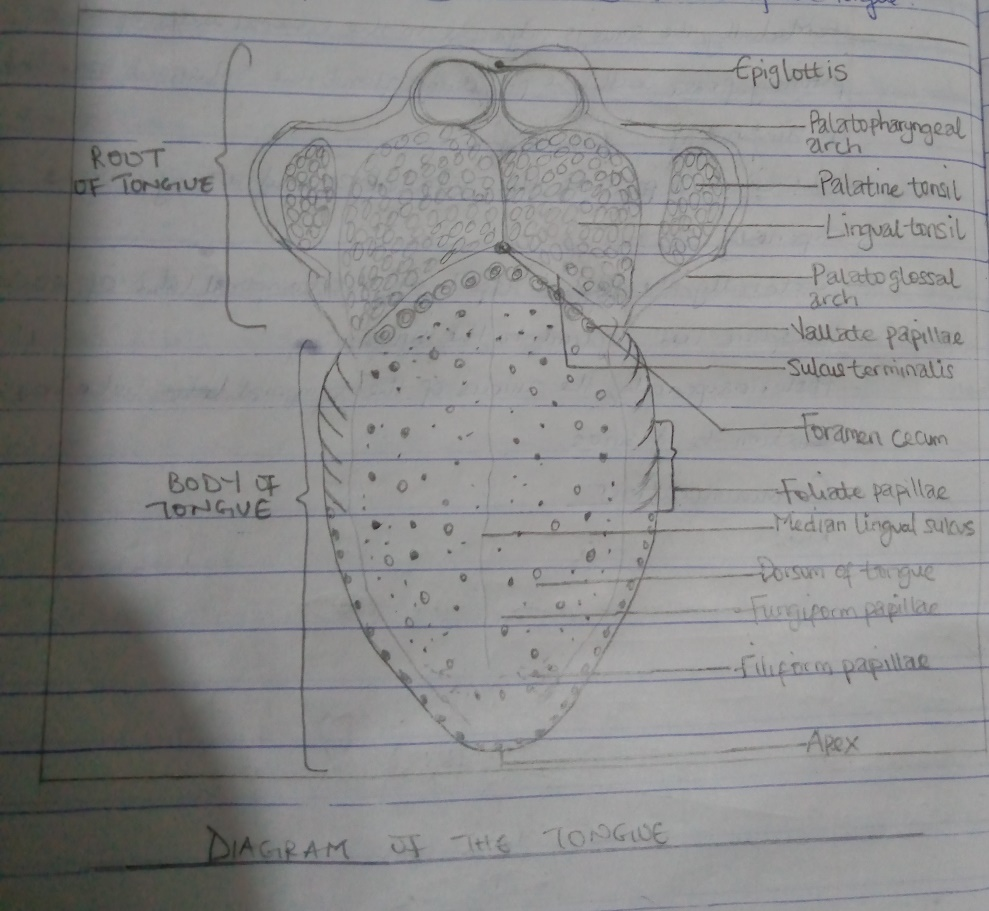 tongue.
Epiglottis
Palatopharyngeal
arch
ROOT
OF TONGUE
Palatine tonsil
Lingual tonsil
Palatoglossal
arch
Vallate papillae
Sulcus terminalis
Foramen cecum
BODY OF
TONGUE
Foliate papillae
Median lingual sulcus
Dorsum of tongue
Fungiform papillae
Filiform papillae
Apex
DIAGRAM OF THE TONGUE